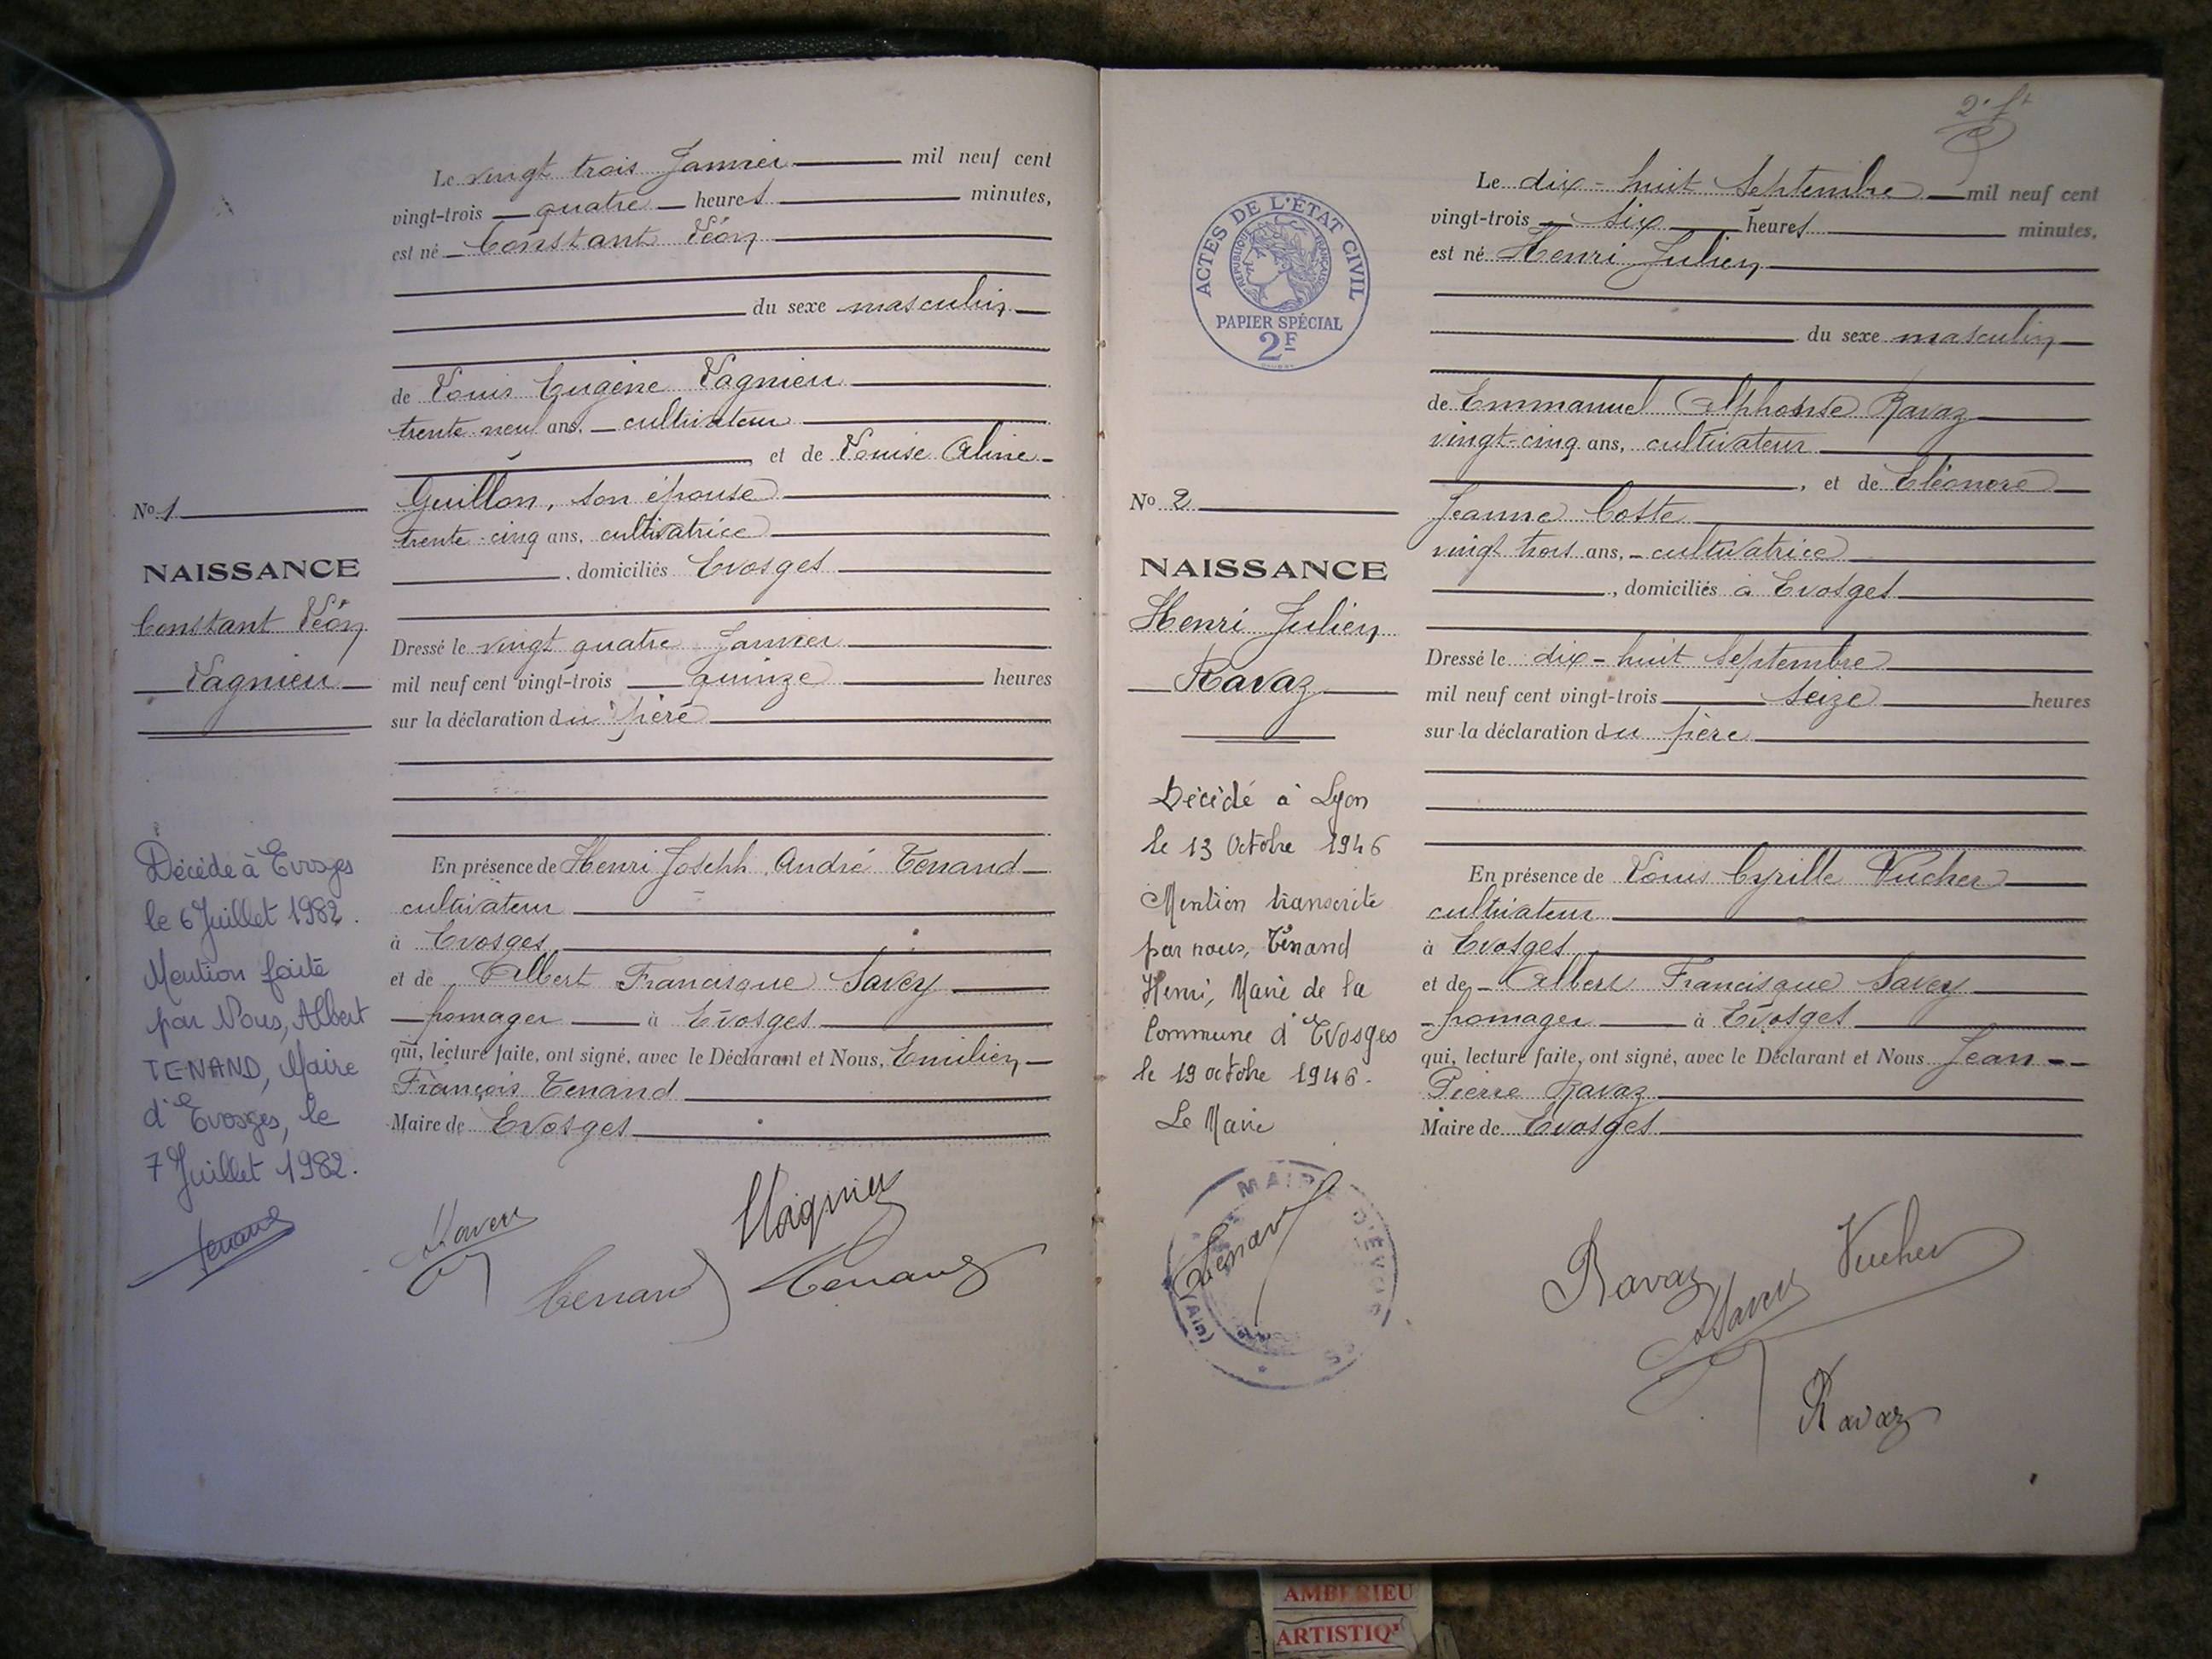 Le vingt trois Janvier mil neuf cent
vingt-trois quatre heures minutes,
est né Constant Léon
du sexe masculin
de Louis Eugène Vagnieu
trente neuf ans, cultivateur
et de Louise Aline
Guillon, son épouse
trente-cinq ans, cultivatrice
, domiciliés Evosges
Dressé le vingt quatre Janvier
mil neuf cent vingt-trois quinze heures
sur la déclaration du père
En présence de Henri Joseph André Tenand
cultivateur
à Evosges
et de Albert Francisque Savey
fromager à Evosges
qui, lecture faite, ont signé, avec le Déclarant et Nous, Emilien
François Tenand
Maire de Evosges
No 1
NAISSANCE
Constant Léon
Vagnieu
Décédé à Evosges
le 6 Juillet 1982.
Mention faite
par Nous, Albert
TENAND, Maire
d'Evosges, le
7 Juillet 1982.
Tenand
Savey
Vagnieu
Tenand
Tenand
ACTES DE L'ÉTAT CIVIL
RÉPUBLIQUE FRANÇAISE
PAPIER SPÉCIAL
2F
No 2
NAISSANCE
Henri Julien
Ravaz
Décédé à Lyon
le 13 Octobre 1946
Mention transcrite
par nous, Tenand
Henri, Maire de la
Commune d'Evosges
le 19 octobre 1946.
Le Maire
Tenand
MAIRIE D'EVOSGES
(Ain)
Le dix-huit Septembre mil neuf cent
vingt-trois six heures minutes,
est né Henri Julien
du sexe masculin
de Emmanuel Alphonse Ravaz
vingt-cinq ans, cultivateur
, et de Eléonore
Jeanne Coste
vingt trois ans, cultivatrice
, domiciliés à Evosges
Dressé le dix-huit Septembre
mil neuf cent vingt-trois seize heures
sur la déclaration du père
En présence de Louis Cyrille Vucher
cultivateur
à Evosges
et de Albert Francisque Savey
fromager à Evosges
qui, lecture faite, ont signé, avec le Déclarant et Nous Jean
Pierre Ravaz
Maire de Evosges
Ravaz
Savey
Vucher
Ravaz
AMBERIEU
ARTISTIQ